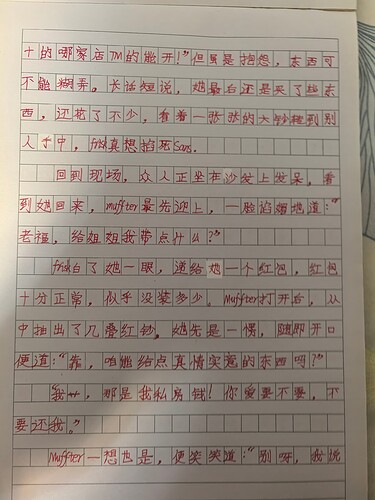 十的哪家店TM的能开!"但虽是抱怨,东西可
不能糊弄。长话短说,她最后还是买了些东
西,还花了不少,看着一张张的大钞撞到别
人手中,frisk真想掐死Sans.
回到现场,众人正坐在沙发上发呆,看
到她回来,muffter最先迎上,一脸谄媚地道:"
老福,给姐姐我带点什么?"
frisk白了她一眼,递给她一个红包,红包
十分正常,似乎没装多少。Muffter打开后,从
中抽出了几叠红钞,她先是一愣,随即开口
便道:"靠,咱能给点真情实意的东西吗?"
"我艹,那是我私房钱!你爱要不要,不
要还我。"
Muffter一想也是,便笑笑道:"别呀,我说